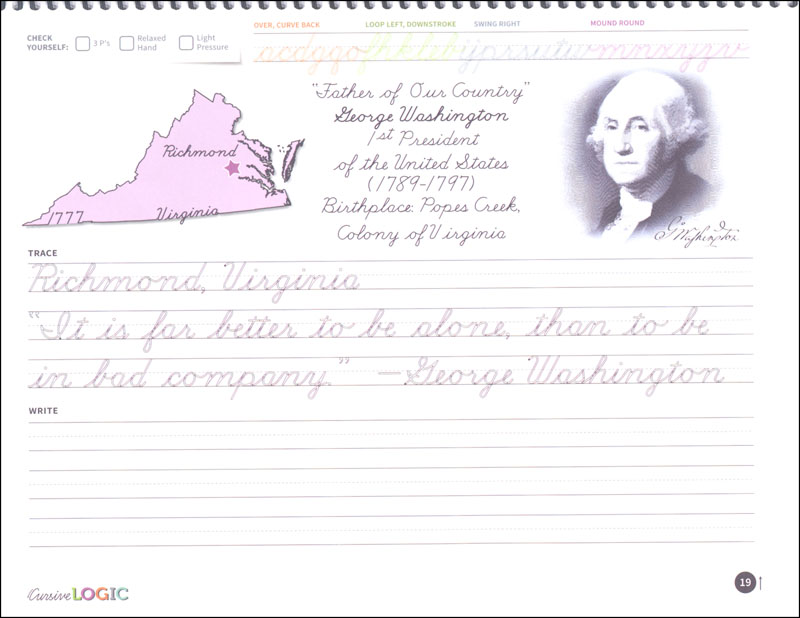 OVER, CURVE BACK LOOP LEFT, DOWNSTROKE SWING RIGHT MOUND ROUND
CHECK YOURSELF: 3 P's Relaxed Hand Light Pressure
"Father of Our Country"
George Washington
1st President
of the United States
(1789-1797)
Birthplace: Popes Creek,
Colony of Virginia
Richmond
1777 Virginia
G Washington
TRACE
Richmond, Virginia
"It is far better to be alone, than to be
in bad company." —George Washington
WRITE
Cursive LOGIC
19